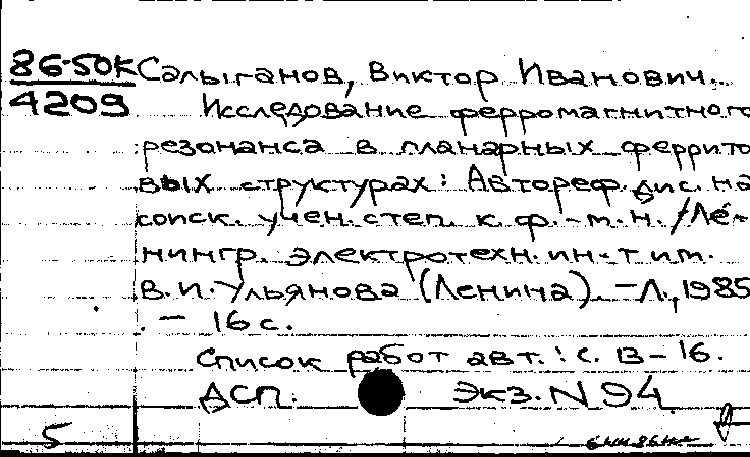 86-50К Салыганов, Виктор Иванович.
4209 Исследование ферромагнитного
резонанса в планарных феррито
вых структурах: Автореф. дис. на
соиск. учен. степ. к. ф.-т. н. /Ле-
нингр. электротехн. ин-т им.
В. И. Ульянова (Ленина). - Л., 1985
. - 16 с.
Список работ авт.: с. 13-16.
ДСП. Экз. N 94
5